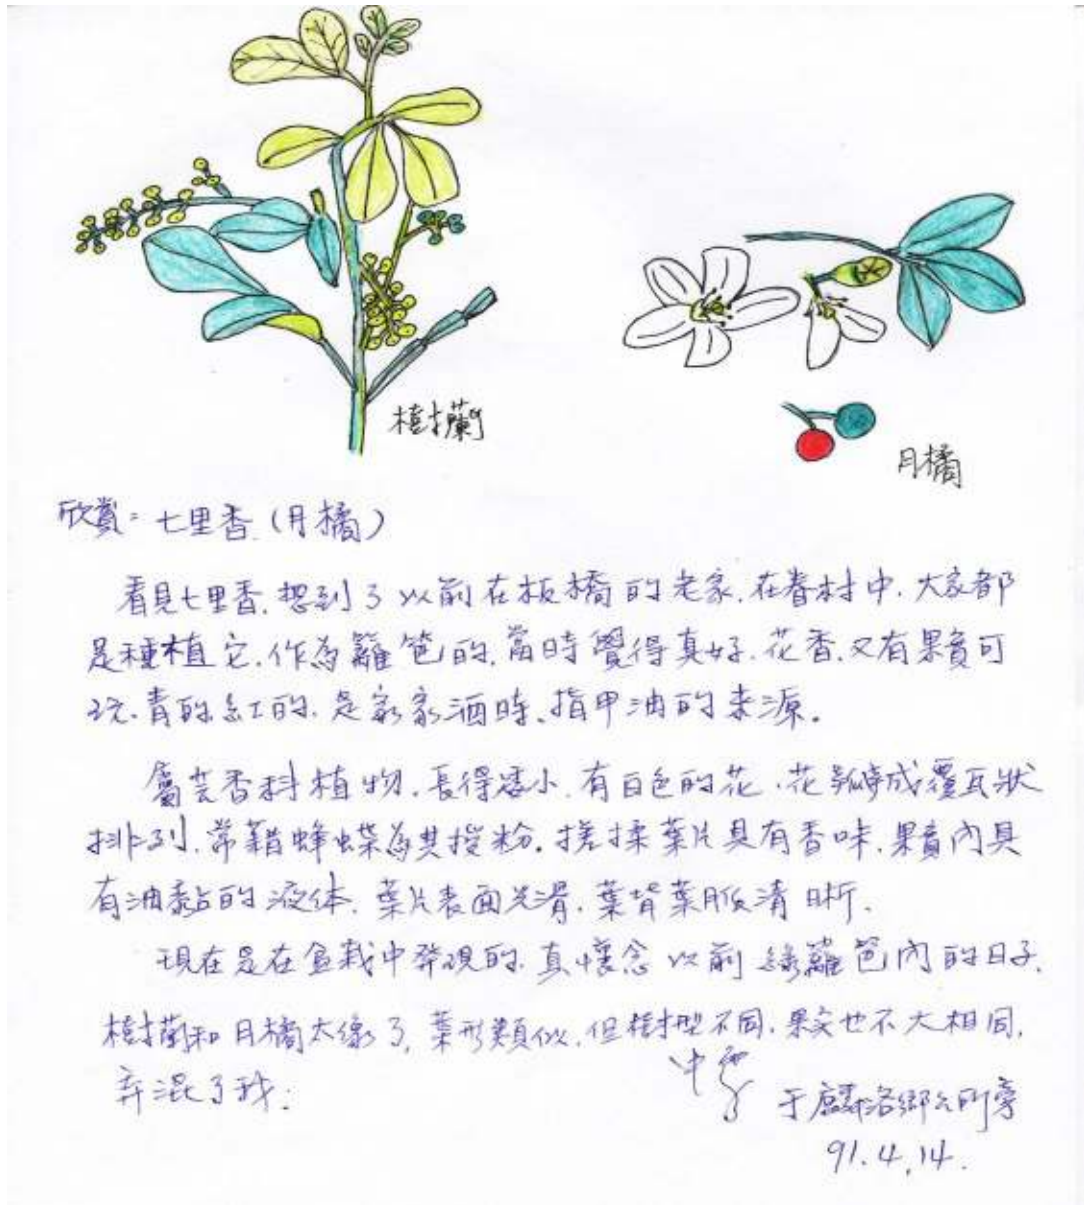 樹蘭
月橘
欣賞：七里香（月橘）
看見七里香，想到了以前在板橋的老家，在眷村中，大家都
是種植它，作為籬笆的，當時覺得真好，花香，又有果實可
玩，青的紅的，是家家酒時，指甲油的來源。
屬芸香科植物，長得矮小，有白色的花，花瓣成覆瓦狀
排列，常藉蜂蝶為其授粉。搓揉葉片具有香味，果實內具
有油黏的液体，葉片表面光滑，葉背葉脈清晰，
現在是在盆栽中發現的，真懷念以前綠籬笆內的日子，
樹蘭和月橘太像了，葉形類似，但樹型不同，果实也不大相同，
弄混了我；
于麟洛鄉公所旁
91.4.14.